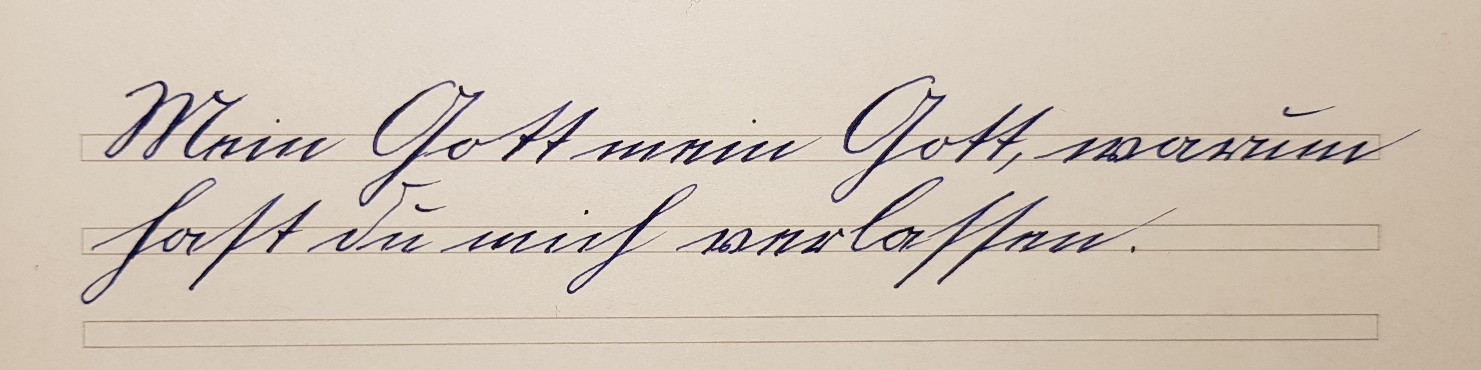 Mein Gott mein Gott, warum
hast du mich verlassen.